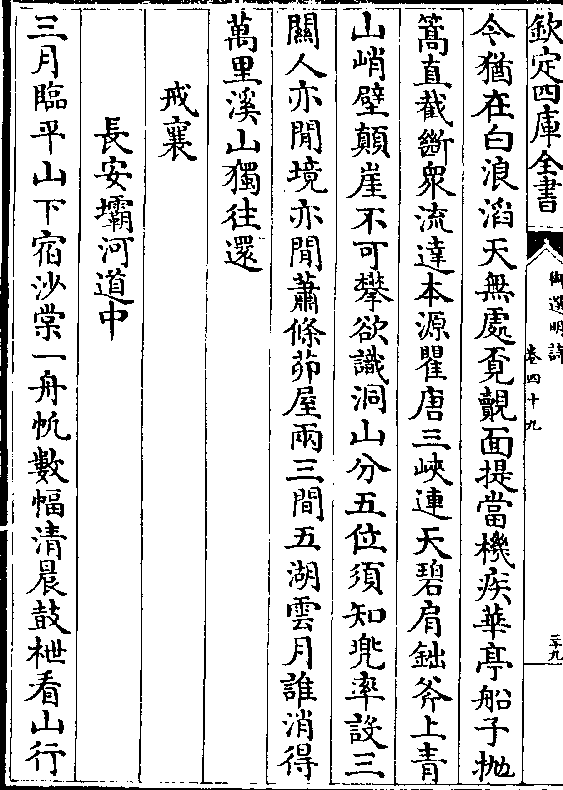 欽定四庫全書
御選明詩
卷四十九
三十九
今猶在白浪滔天無處覓覿面提當機疾華亭船子拋
篙直截斷衆流達本源瞿唐三峽連天碧肩鈯斧上青
山峭壁顛崖不可攀欲識洞山分五位須知兜率設三
關人亦閒境亦閒蕭條茆屋兩三間五湖雲月誰消得
萬里溪山獨往還
戒襄
長安壩河道中
三月臨平山下宿沙棠一舟帆數幅清晨鼓枻看山行